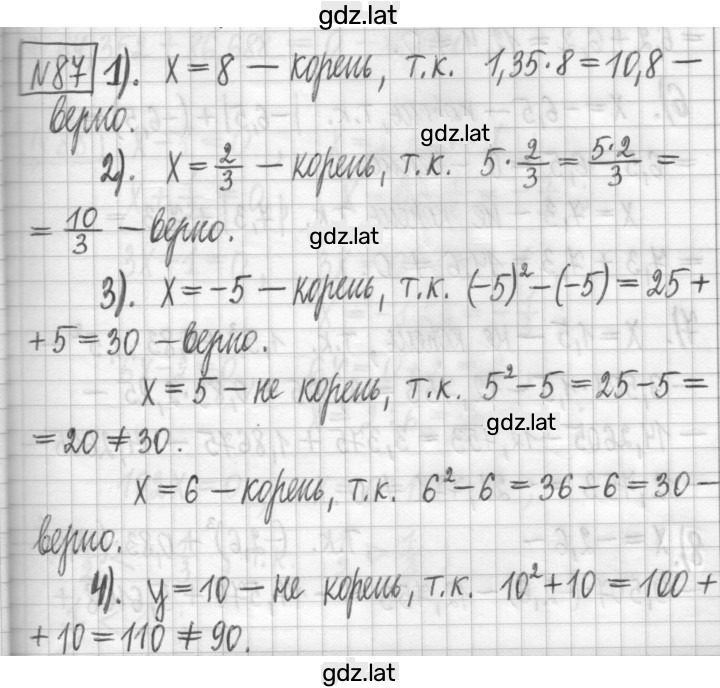 gdz.lat
№87 1). x = 8 – корень, т.к. 1,35·8 = 10,8 –
верно.
gdz.lat
2). x = 2/3 – корень, т.к. 5·2/3 = 5·2/3 =
= 10/3 – верно.
gdz.lat
3). x = -5 – корень, т.к. (-5)² - (-5) = 25 +
+ 5 = 30 – верно.
x = 5 – не корень, т.к. 5² - 5 = 25 - 5 =
gdz.lat
= 20 ≠ 30.
x = 6 – корень, т.к. 6² - 6 = 36 - 6 = 30 –
верно.
4). y = 10 – не корень, т.к. 10² + 10 = 100 +
+ 10 = 110 ≠ 90.
gdz.lat